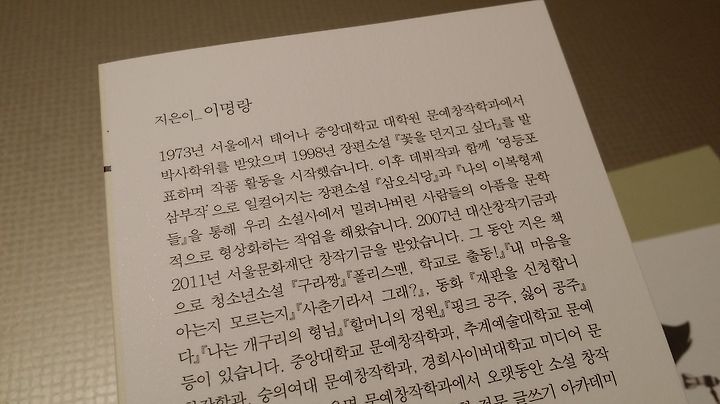 지은이_ 이명랑
1973년 서울에서 태어나 중앙대학교 대학원 문예창작학과에서
박사학위를 받았으며 1998년 장편소설 『꽃을 던지고 싶다』를 발
표하며 작품 활동을 시작했습니다. 이후 데뷔작과 함께 '영등포
삼부작'으로 일컬어지는 장편소설 『삼오식당』과 『나의 이복형제
들』을 통해 우리 소설사에서 밀려나버린 사람들의 아픔을 문학
적으로 형상화하는 작업을 해왔습니다. 2007년 대산창작기금과
2011년 서울문화재단 창작기금을 받았습니다. 그 동안 지은 책
으로 청소년소설 『구라짱』『폴리스맨, 학교로 출동!』『내 마음을
아는지 모르는지』『사춘기라서 그래?』, 동화 『재판을 신청합니
다』『나는 개구리의 형님』『할머니의 정원』『핑크 공주, 싫어 공주』
등이 있습니다. 중앙대학교 문예창작학과, 추계예술대학교 문예
창작학과, 숭의여대 문예창작학과, 경희사이버대학교 미디어 문
문예창작학과에서 오랫동안 소설 창작
전문 글쓰기 아카데미